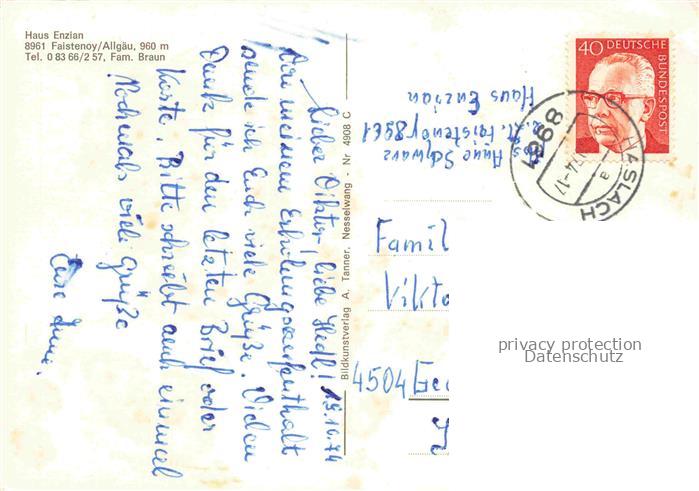 Haus Enzian
8961 Faistenoy/Allgäu, 960 m
Tel. 0 83 66/2 57, Fam. Braun
Lieber Viktor! liebe Hedl! 15.10.74
Von meinem Erholungsaufenthalt
sende ich Euch viele Grüße. Vielen
Dank für den letzten Brief oder
Karte. Bitte schreibt auch einmal
Nochmals viele Grüße
Eure Anni.
Bildkunstverlag A. Tanner, Nesselwang - Nr 4908 C
Anne Schwarz
z. Zt. Faistenoy 8961
Haus Enzian
40 DEUTSCHE
BUNDESPOST
8961 HASLACH
a
74-17
Famil
Vikto
4504 Geo
privacy protection
Datenschutz